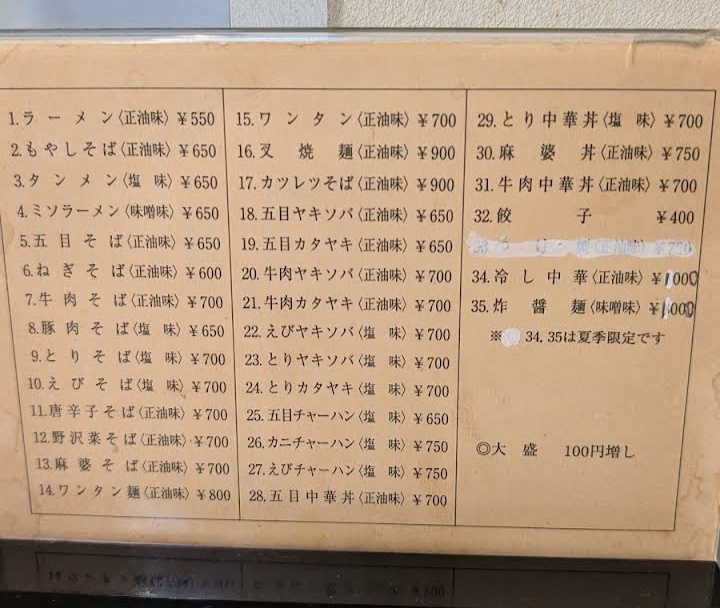 1.ラーメン〈正油味〉¥550
2.もやしそば〈正油味〉¥650
3.タンメン〈塩味〉¥650
4.ミソラーメン〈味噌味〉¥650
5.五目そば〈正油味〉¥650
6.ねぎそば〈正油味〉¥600
7.牛肉そば〈正油味〉¥700
8.豚肉そば〈塩味〉¥650
9.とりそば〈塩味〉¥700
10.えびそば〈塩味〉¥700
11.唐辛子そば〈正油味〉¥700
12.野沢菜そば〈正油味〉¥700
13.麻婆そば〈正油味〉¥700
14.ワンタン麺〈正油味〉¥800
15.ワンタン〈正油味〉¥700
16.叉焼麺〈正油味〉¥900
17.カツレツそば〈正油味〉¥900
18.五目ヤキソバ〈正油味〉¥650
19.五目カタヤキ〈正油味〉¥650
20.牛肉ヤキソバ〈正油味〉¥700
21.牛肉カタヤキ〈正油味〉¥700
22.えびヤキソバ〈塩味〉¥700
23.とりヤキソバ〈塩味〉¥700
24.とりカタヤキ〈塩味〉¥700
25.五目チャーハン〈塩味〉¥650
26.カニチャーハン〈塩味〉¥750
27.えびチャーハン〈塩味〉¥750
28.五目中華丼〈正油味〉¥700
29.とり中華丼〈塩味〉¥700
30.麻婆丼〈正油味〉¥750
31.牛肉中華丼〈正油味〉¥700
32.餃子¥400
34.冷し中華〈正油味〉¥1000
35.炸醤麺〈味噌味〉¥1000
※34,35は夏季限定です
◎大盛 100円増し